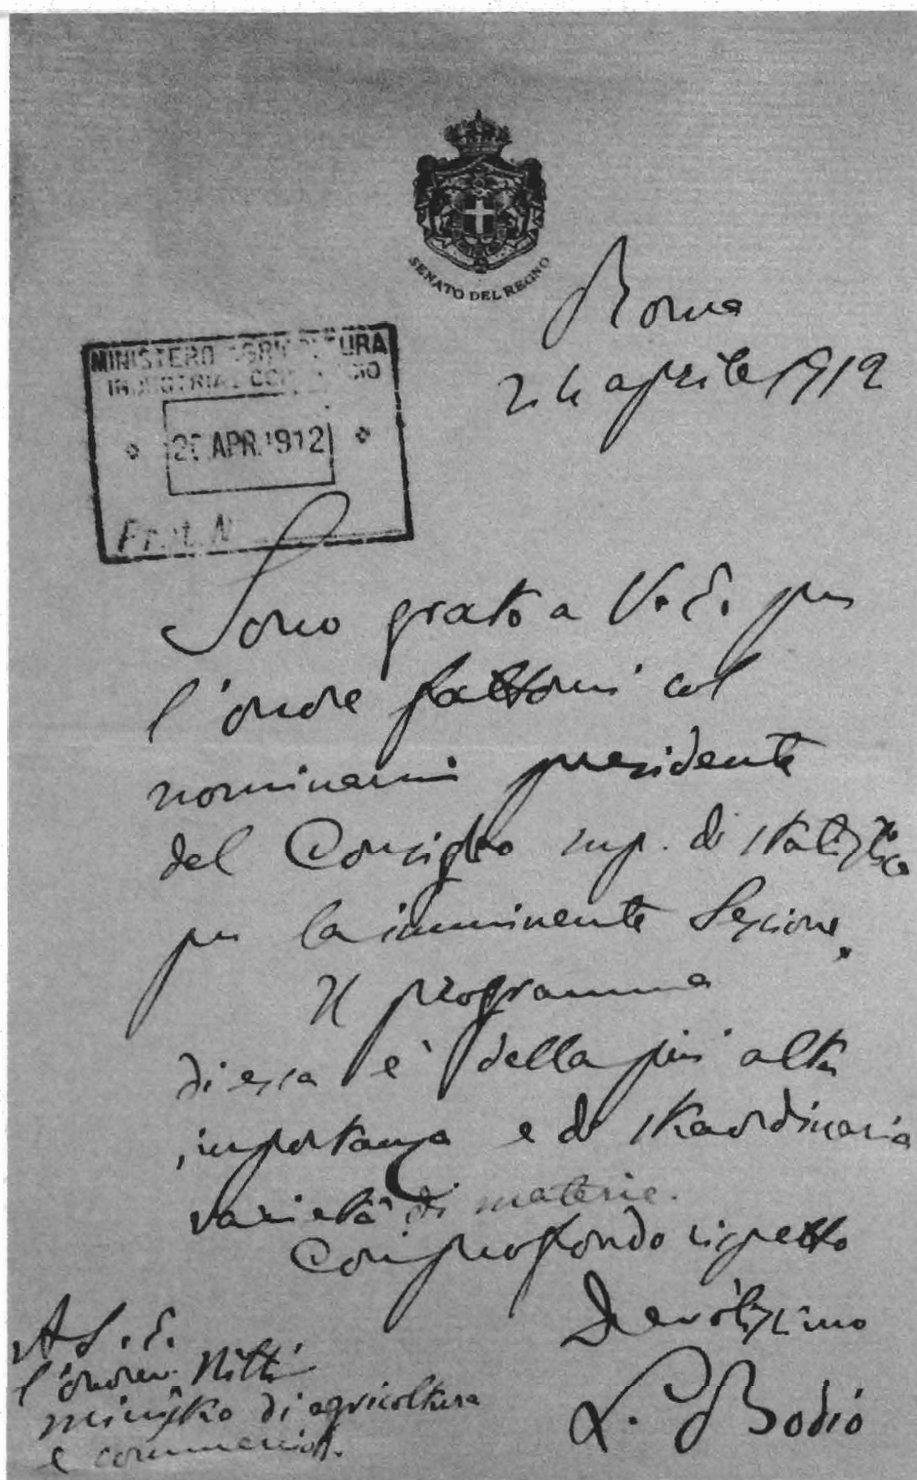 SENATO DEL REGNO
Roma
24 aprile 1912
MINISTERO AGRICOLTURA
INDUSTRIA COMMERCIO
APR. 1912
Prot. N
Sono grato a V. E. per
l'onore fattomi col
nominarmi presidente
del Consiglio sup. di statistica
per la imminente Sessione.
Il programma
di essa è della più alta
importanza e di straordinaria
varietà di materie.
Con profondo rispetto
Devotissimo
L. Bodio
A S. E.
l'onorev. Nitti
ministro di agricoltura
e commercio